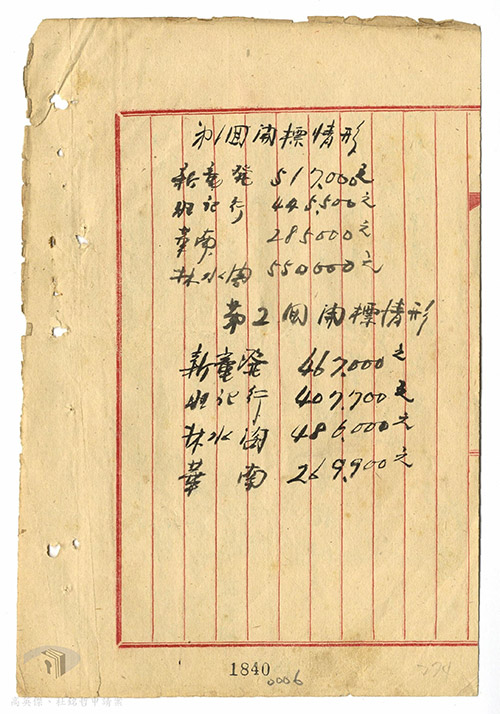 第1回開標情形
新竜発 517,000元
旺記行 445,500元
華南 285000元
林水陶 550000元
第2回開標情形
新竜発 467,000元
旺記行 407,700元
林水陶 486,000元
華南 269,900元
1840
0006